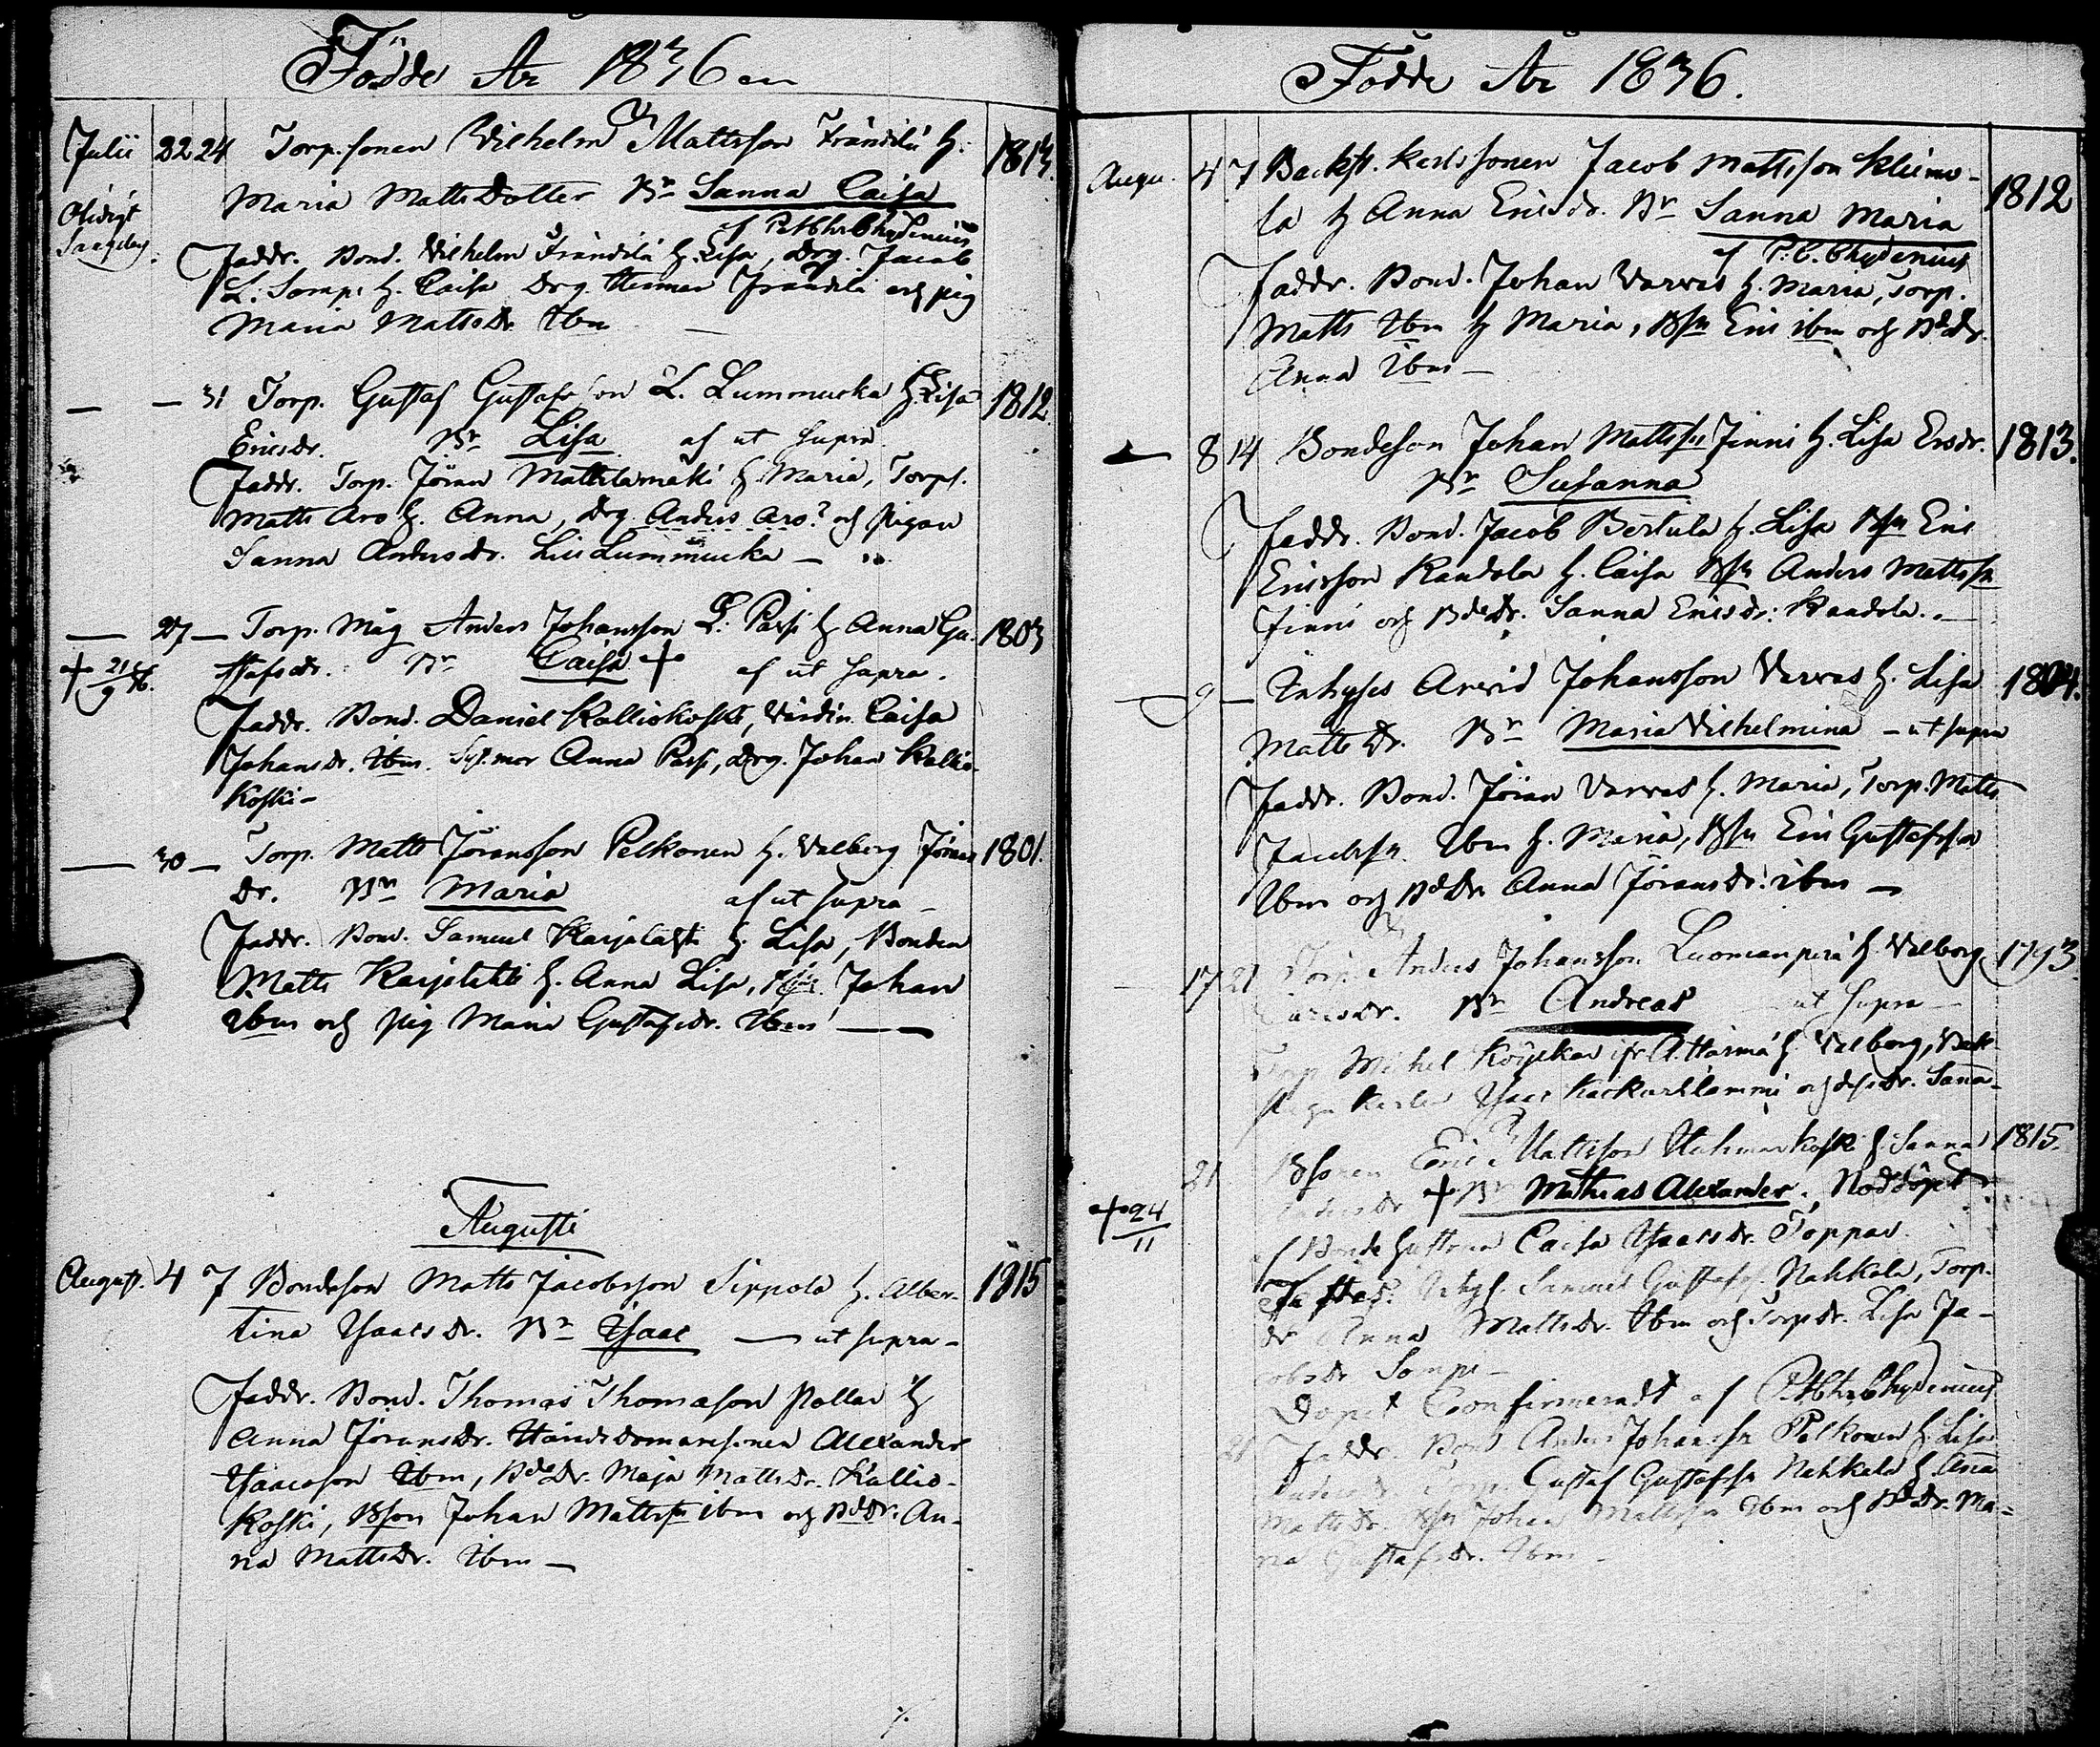 Födde År 1836
Julii 22 24 Torp.sonen Vilhelm Mattsson Frändilä h. 1813.
Maria MattsDotter Bn Sanna Caisa
af P. Chydenius
Faddr. Bond. Vilhelm Frändilä h. Lisa, Drg. Jacob
L. Sompi h. Caisa Drg. Herman Frändilä och pig
Maria Mattsdr. Ibm
— — 31 Torp. Gustaf Gustafsson L. Lummucka h. Lisa 1812
Ericsdr. Bn Lisa af ut supra
Faddr. Torp. Jöran Mattilamäki h. Maria, Torp.
Matts Aro h. Anna, drg Anders Aro? och pigan
Sanna Andersdr. Lill Lummucka —
— 27 — Torp. Måg Anders Johansson L. Passi h Anna Gu- 1803
+ 21/9 36. stafsdr. Bn Caisa + af ut supra.
Faddr. Bond. Daniel Kalliokoski, Värdin. Caisa
Johansdr. Ibm. Anna Passi, drg. Johan Kallio-
koski —
— 30 — Torp. Matts Jöransson Pelkonen h. Valborg Jörans 1801.
dr. Bn Maria af ut supra —
Faddr. Bond. Samuel Karjalahti h. Lisa, Bonden
Matts Karjalahti h. Anna Lisa, Johan
Ibm och pig Maria Gustafsdr. Ibm —
Augusti
August. 4 7 Bondeson Matts Jacobsson Sippola h. Alber- 1815
tina Isaacsdr. Bn Isaac — ut supra —
Faddr. Bond. Thomas Thomasson Pollari h
Anna Jöransdr. Häradsdomaresonen Alexander
Isaacsson Ibm, BdeDr. Maja Mattsdr. Kallio-
koski, Bson Johan Mattssn ibm och BdDr. An-
na Mattsdr. Ibm —
Födde År 1836.
Augu. 4 7 Backst. karlssonen Jacob Mattsson Kleimo- 1812
la h Anna Ericsdr. Bn Sanna Maria
af P. C. Chydenius
Faddr. Bond. Johan Varvas h. Maria, Torp.
Matts Ibm h Maria, Bsn Eric ibm och BdDr.
Anna Ibm —
— 8 14 Bondeson Johan Mattssn Finni h. Lisa Ersdr. 1813.
Bn Susanna
Faddr. Bond. Jacob Bertula h. Lisa Bsn Eric
Ericsson Kandola h. Caisa Bsn Anders Mattssn
Finni och BdeDr. Sanna Ericsdr. Kandola. —
— 9 — Inhyses Arvid Johansson Varvas h. Lisa 1804.
Matts Dr. Bn Maria Vilhelmina — ut supra
Faddr. Bond. Jöran Varvas h. Maria, Torp. Matts
Jacobssn Ibm h. Maria, Bsn Eric Gustafssn
Ibm och BdDr Anna Jöransdr. ibm —
17 21 Torp. Anders Johansson Luomanperä h. Valborg 1793
Larsdr. Bn Andreas ut supra —
Torp Michel h. Valborg, Back-
stugu Karlen Isac Kackurilammi och Dr. Sanna —
21 Bsonen Eric Mattsson Huhmarkoski h. Sanna 1815.
+ 24/11 Andersdr + Bn Mathias Alexander. Nöddöpt
af Bondehustrun Caisa Isaacsdr. Töppar
Inhys. Samuel Gustafss. Nahkala, Torp.
dr Anna Mattsdr. Ibm och Torpdr. Lisa Ja-
cobsdr Sompi —
Dopet Confirmeradt af P. Chydenius
28 Faddr. Bond Anders Johanssn Pelkonen h. Lisa
Andersdr Torp. Gustaf Gustafssn Nahkala h. Anna
Mattsdr. Bsn Johan Mattssn Ibm och BdDr. Ma-
ria Gustafsdr. Ibm —